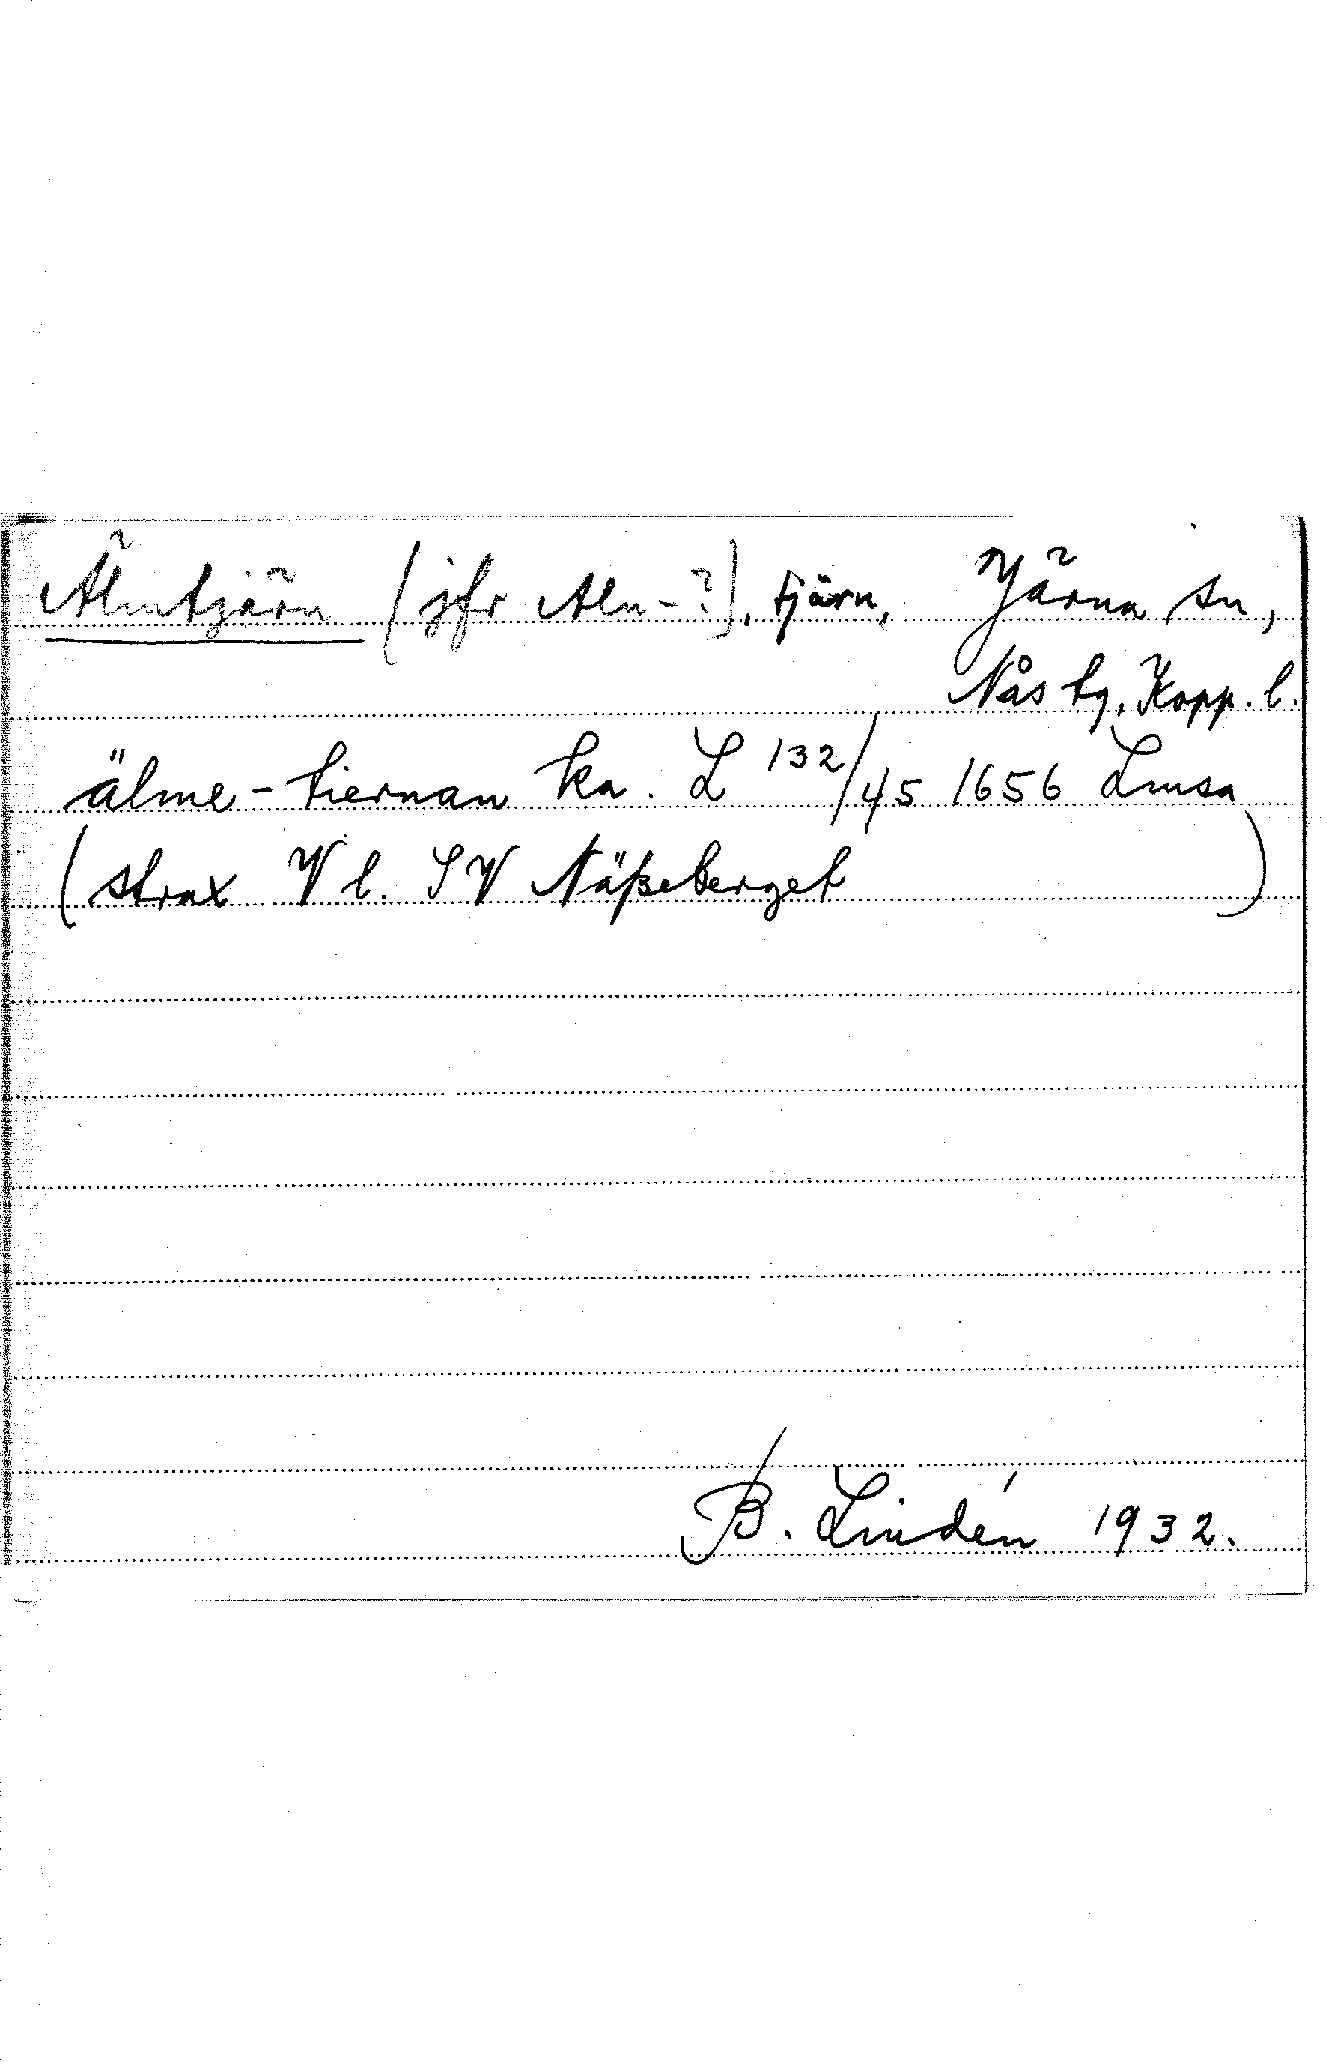 Älmtjärn (jfr Aln-?), tjärn, Järna sn,
Nås tg, Kopp. l.
älme-tiernan ka. L 132/45 1656 Lmsa
(strax V l. SV Näßeberget )
B. Lindén 1932.